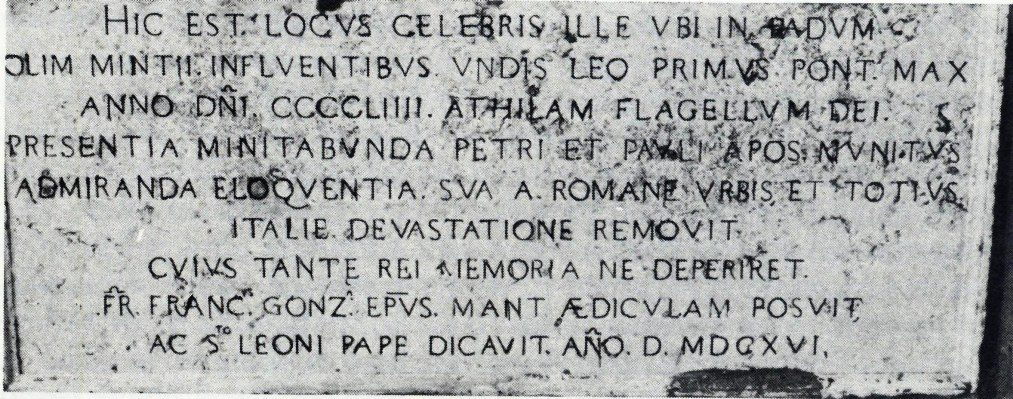 HIC EST. LOCVS CELEBRIS ILLE VBI IN PADVM
OLIM MINTII. INFLVENTIBVS. VNDIS LEO PRIMVS. PONT. MAX
ANNO DÑI. CCCCLIIII. ATHILAM FLAGELLVM DEI.
PRESENTIA MINITABVNDA PETRI ET PAVLI APOS. MVNITVS
ADMIRANDA ELOQVENTIA. SVA A. ROMANE VRBIS ET TOTIVS.
ITALIE. DEVASTATIONE REMOVIT
CVIVS TANTE REI MEMORIA NE DEPERIRET.
FR̃. FRANC. GONZ. EPV̅S. MANT ÆDICVLAM POSVIT
AC S.TO LEONI PAPE DICAVIT. AÑO. D. MDCXVI.